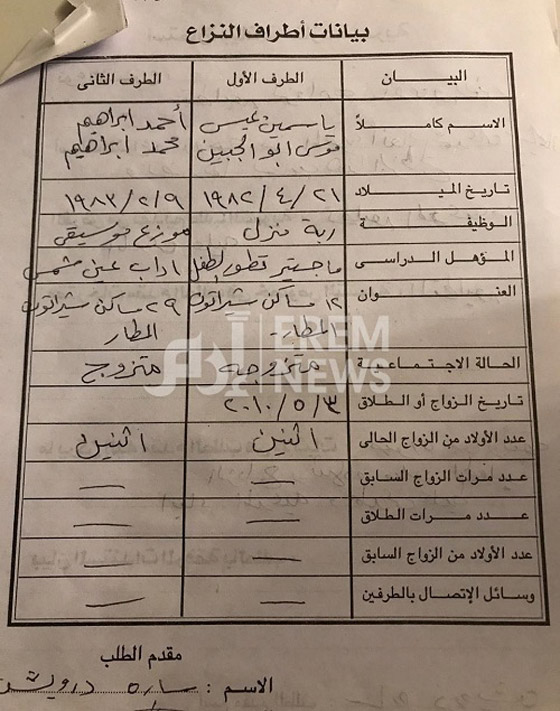 بيانات أطراف النزاع
البيان الطرف الأول الطرف الثانى
الاسم كاملاً ياسمين عيسى أحمد ابراهيم
موسى ابو الجبين محمد ابراهيم
تاريخ الميلاد ٢١/٤/١٩٨٢ ٩/٢/١٩٨٣
الوظيفة ربة منزل موزع موسيقى
المؤهل الدراسى ماجستير تطور لطفل اداب عين شمس
العنوان ١٢ مساكن شيراتون ٢٩ مساكن شيراتون
المطار المطار
EREM
NEWS
الحالة الاجتماعية متزوجه متزوج
تاريخ الزواج أو الطلاق ٣/٥/٢٠١٠
عدد الأولاد من الزواج الحالى اثنين اثنين
عدد مرات الزواج السابق — —
عدد مرات الطلاق — —
عدد الأولاد من الزواج السابق — —
وسائل الإتصال بالطرفين — —
مقدم الطلب
الاسم : ساره درويش